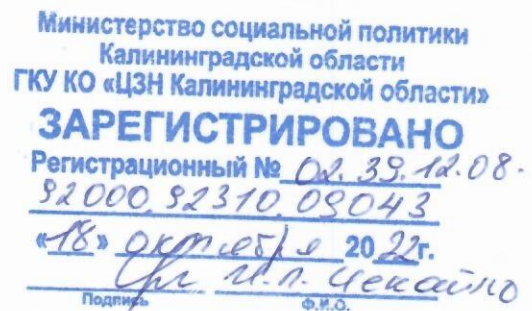 Министерство социальной политики
Калининградской области
ГКУ КО «ЦЗН Калининградской области»
ЗАРЕГИСТРИРОВАНО
Регистрационный № 02.39.12.08.
92000.92310.09043
«18» октября 2022г.
И.П. Чекайло
Подпись Ф.И.О.